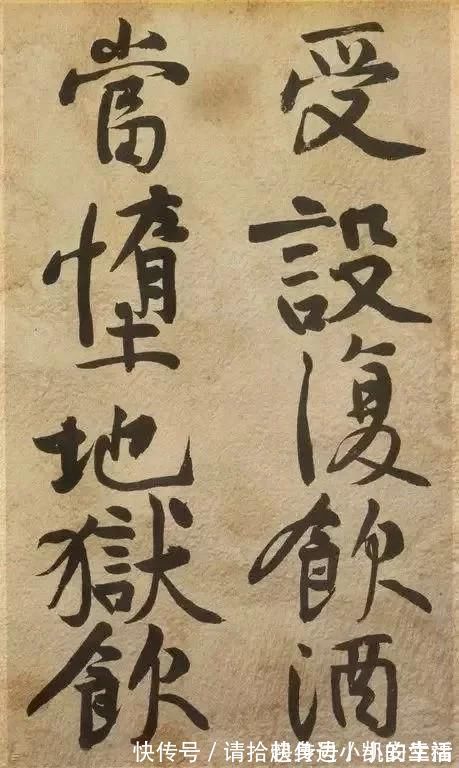 受設復飲酒
當墮地獄飲
快传号／请拾起身边小的幸福